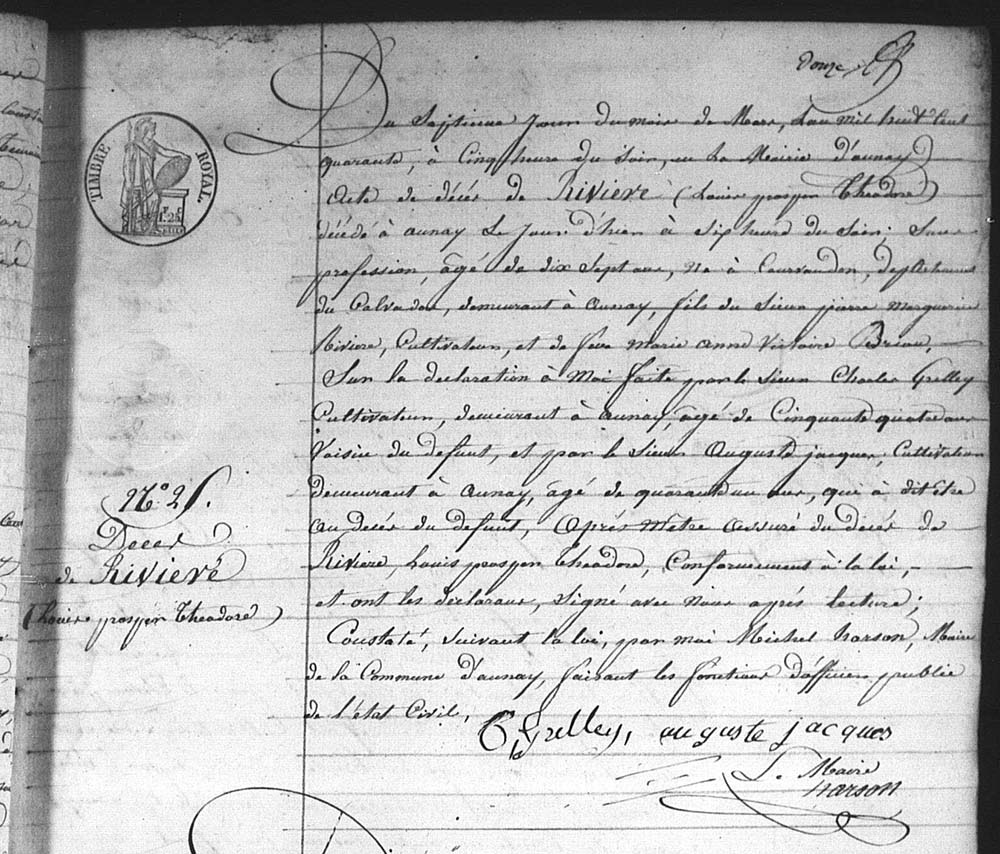 douze
TIMBRE ROYAL.
1F. 25C
Du Septieme jour du mois de Mars, L'an mil huit Cent
quarante, à Cinq heure du Soir, en La Mairie d'aunay
Acte de décés de Riviere (Louis prosper Theadore)
décédé à aunay Le jour d'hier à Sip heures du Soir; Sans
profession, âgé de dix Sept ans, né à Courvaudon, departement
du Calvados, demeurant à aunay, fils du Sieur pierre Marguerin
Riviere, Cultivateur, et de feue Marie anne Victoire Breau,
Sur la declaration à Moi faite par le Sieur Charles Grelley
Cultivateur, demeurant à aunay, agé de Cinquante quatre ans
Voisin du defunt, et par le Sieur Auguste jacques, Cultivateur
demeurant à aunay, agé de quarante un ans, qui à dit être
au decés du defunt, Aprés M'etre assuré du decés de
Riviere, Louis prosper Theadore, Conformement à la loi,
et ont les declarans, Signé avec Nous aprés lecture;
Constaté, Suivant la loi, par moi Michel harson, Maire
de la Commune d'aunay, faisant les fonctions d'officier public
de l'état Civil,
C Grelley, auguste jacques
L. Maire
harson
Décés
de Riviere
(Louis prosper Theadore)